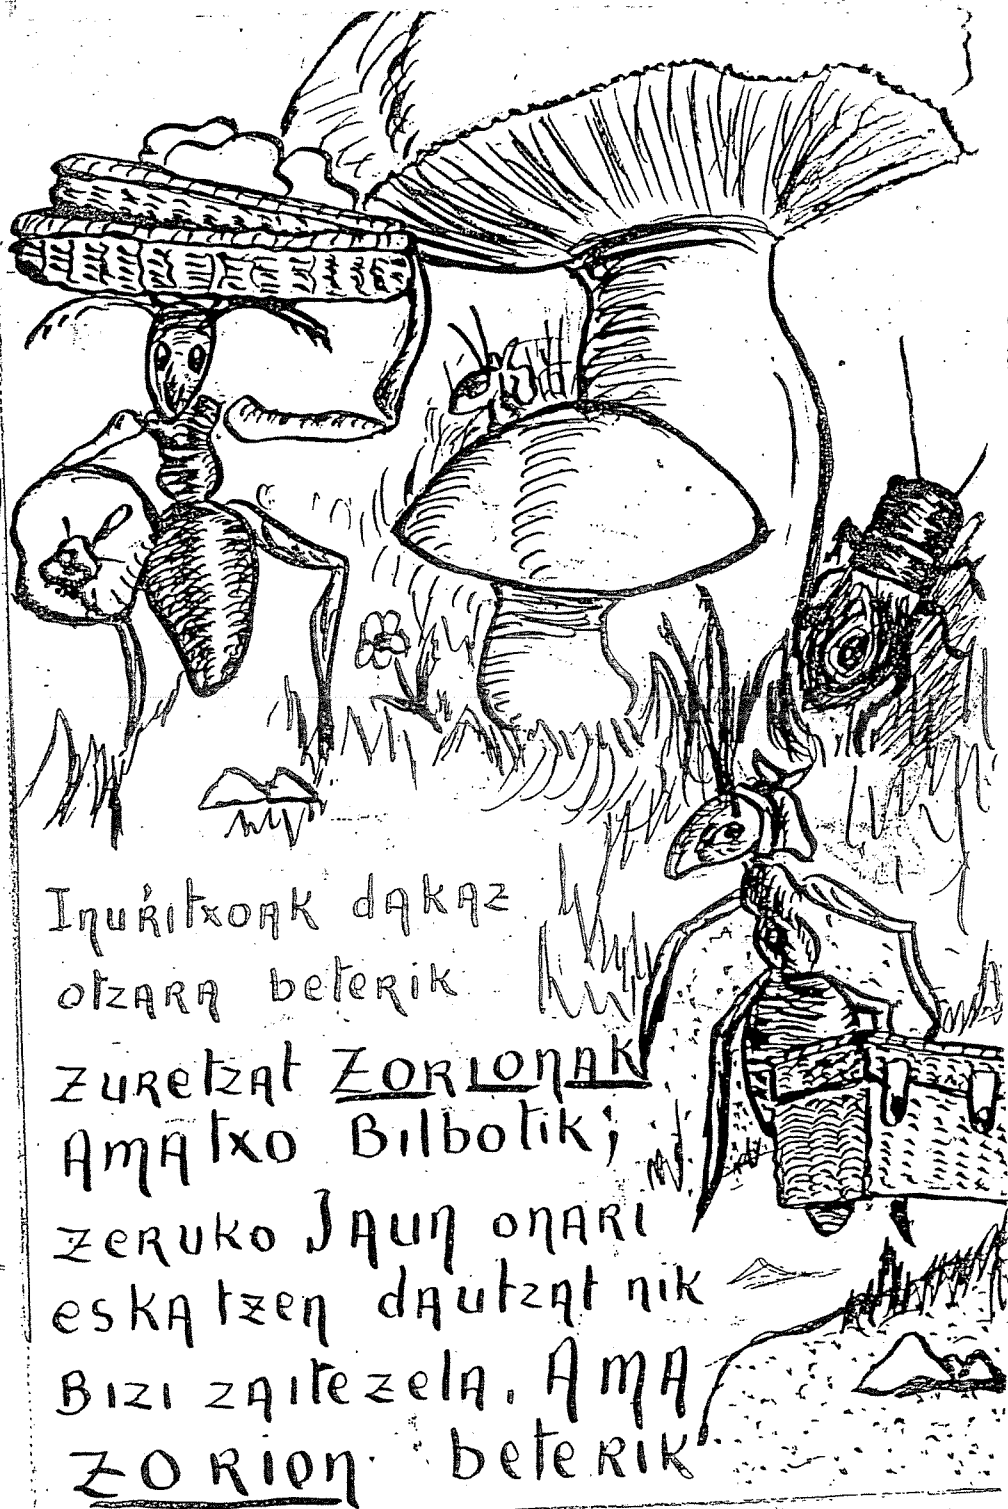 Inuŕitxoak dakaz
otzara beterik
zuretzat ZORIONAK
AMAtxo Bilbotik;
zeruko JAUN onari
eskatzen dautzat nik
Bizi zaitezela, AMA
ZORION beterik